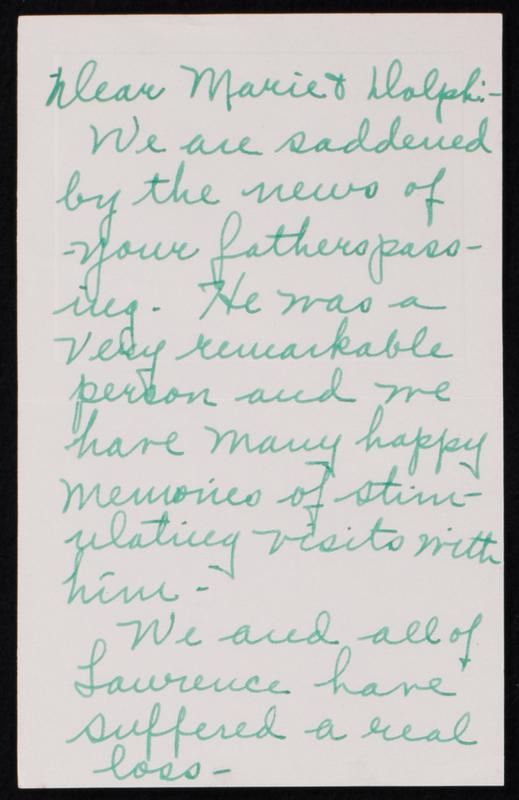 Dear Marie & Dolph:-
We are saddened
by the news of
your fathers pass-
ing. He was a
very remarkable
person and we
have many happy
memories of stim-
ulating visits with
him -
We and all of
Lawrence have
suffered a real
loss -